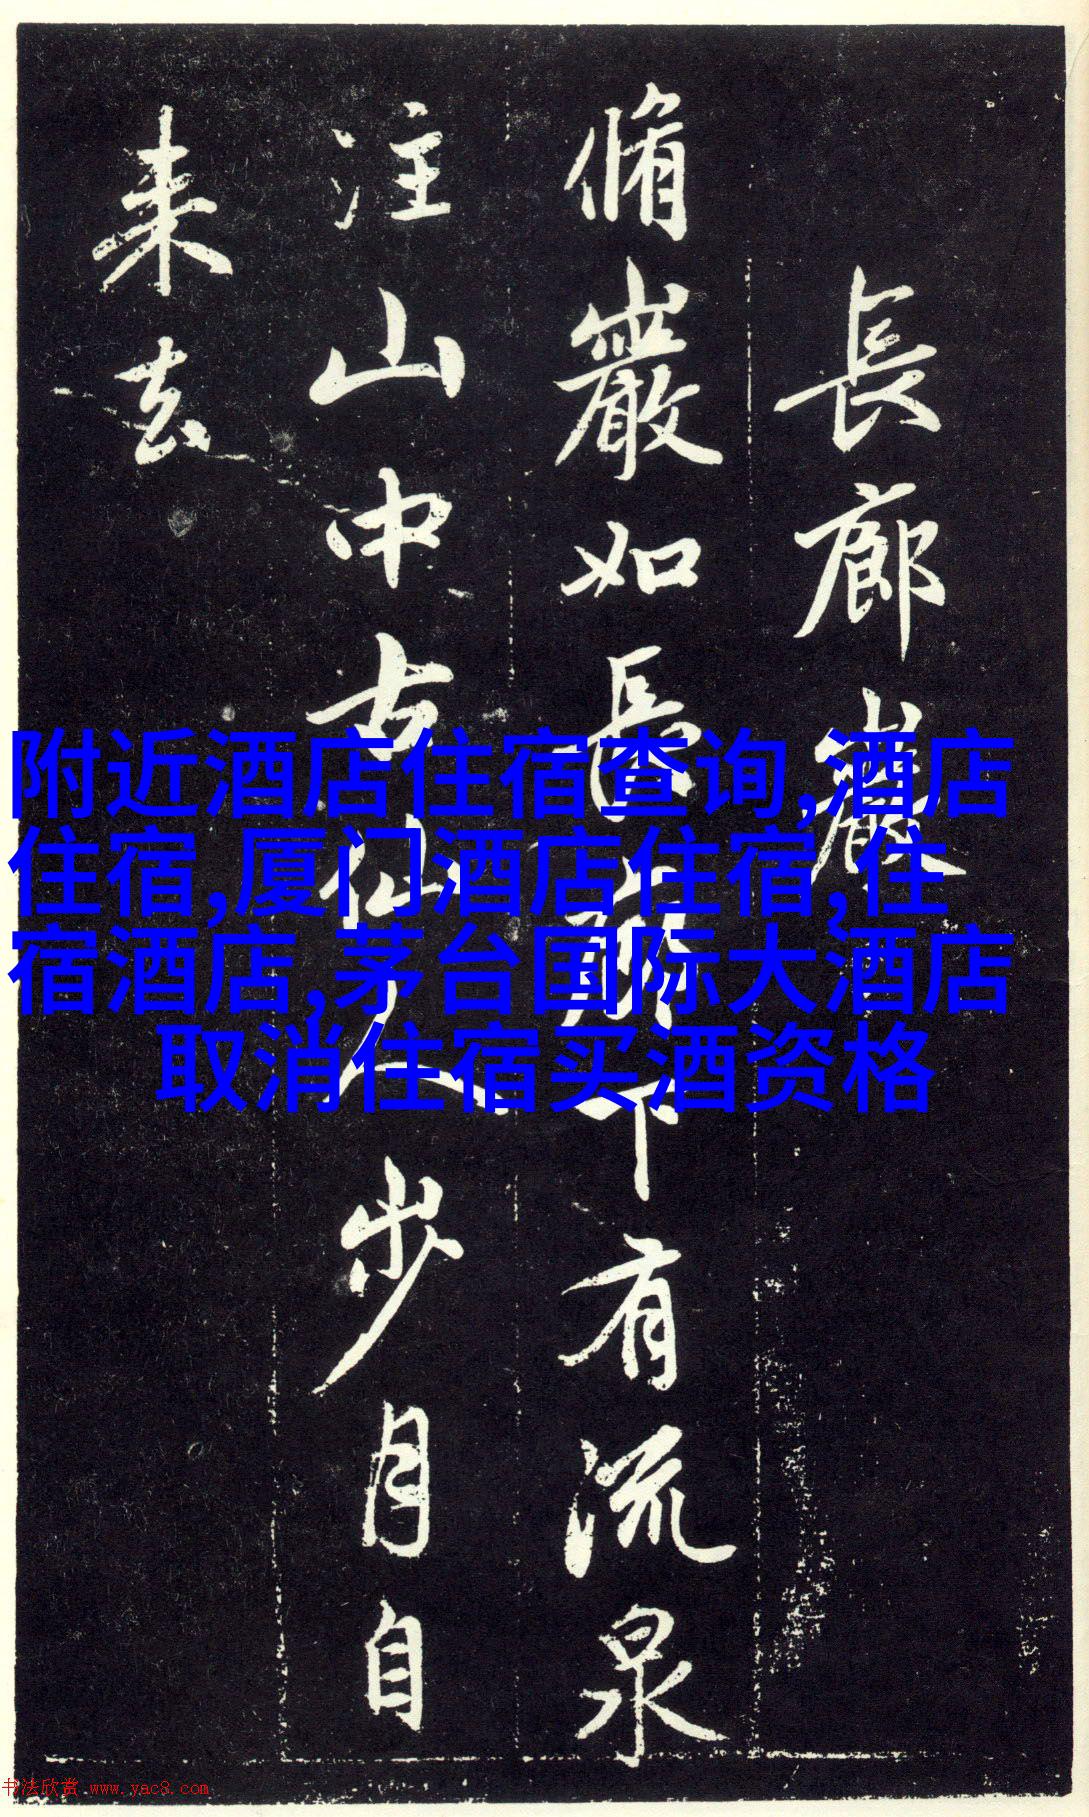 長廊巖
脩巖如長廊下有流泉
注山中古仙人步月自
来去
附近酒店住宿查询,酒店
住宿,厦门酒店住宿,住
宿酒店,茅台国际大酒店
取消住宿买酒资格
书法欣赏 www.yac8.com